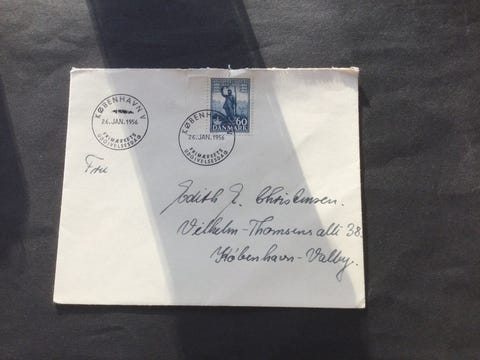 KØBENHAVN V
26. JAN. 1956
FRIMÆRKETS
UDGIVELSESDAG
KØBENHAVN
26. JAN. 1956
FRIMÆRKETS
UDGIVELSESDAG
60
DANMARK
Fru
Edith E. Christensen.
Vilhelm-Thomsens allé 38.
København-Valby.